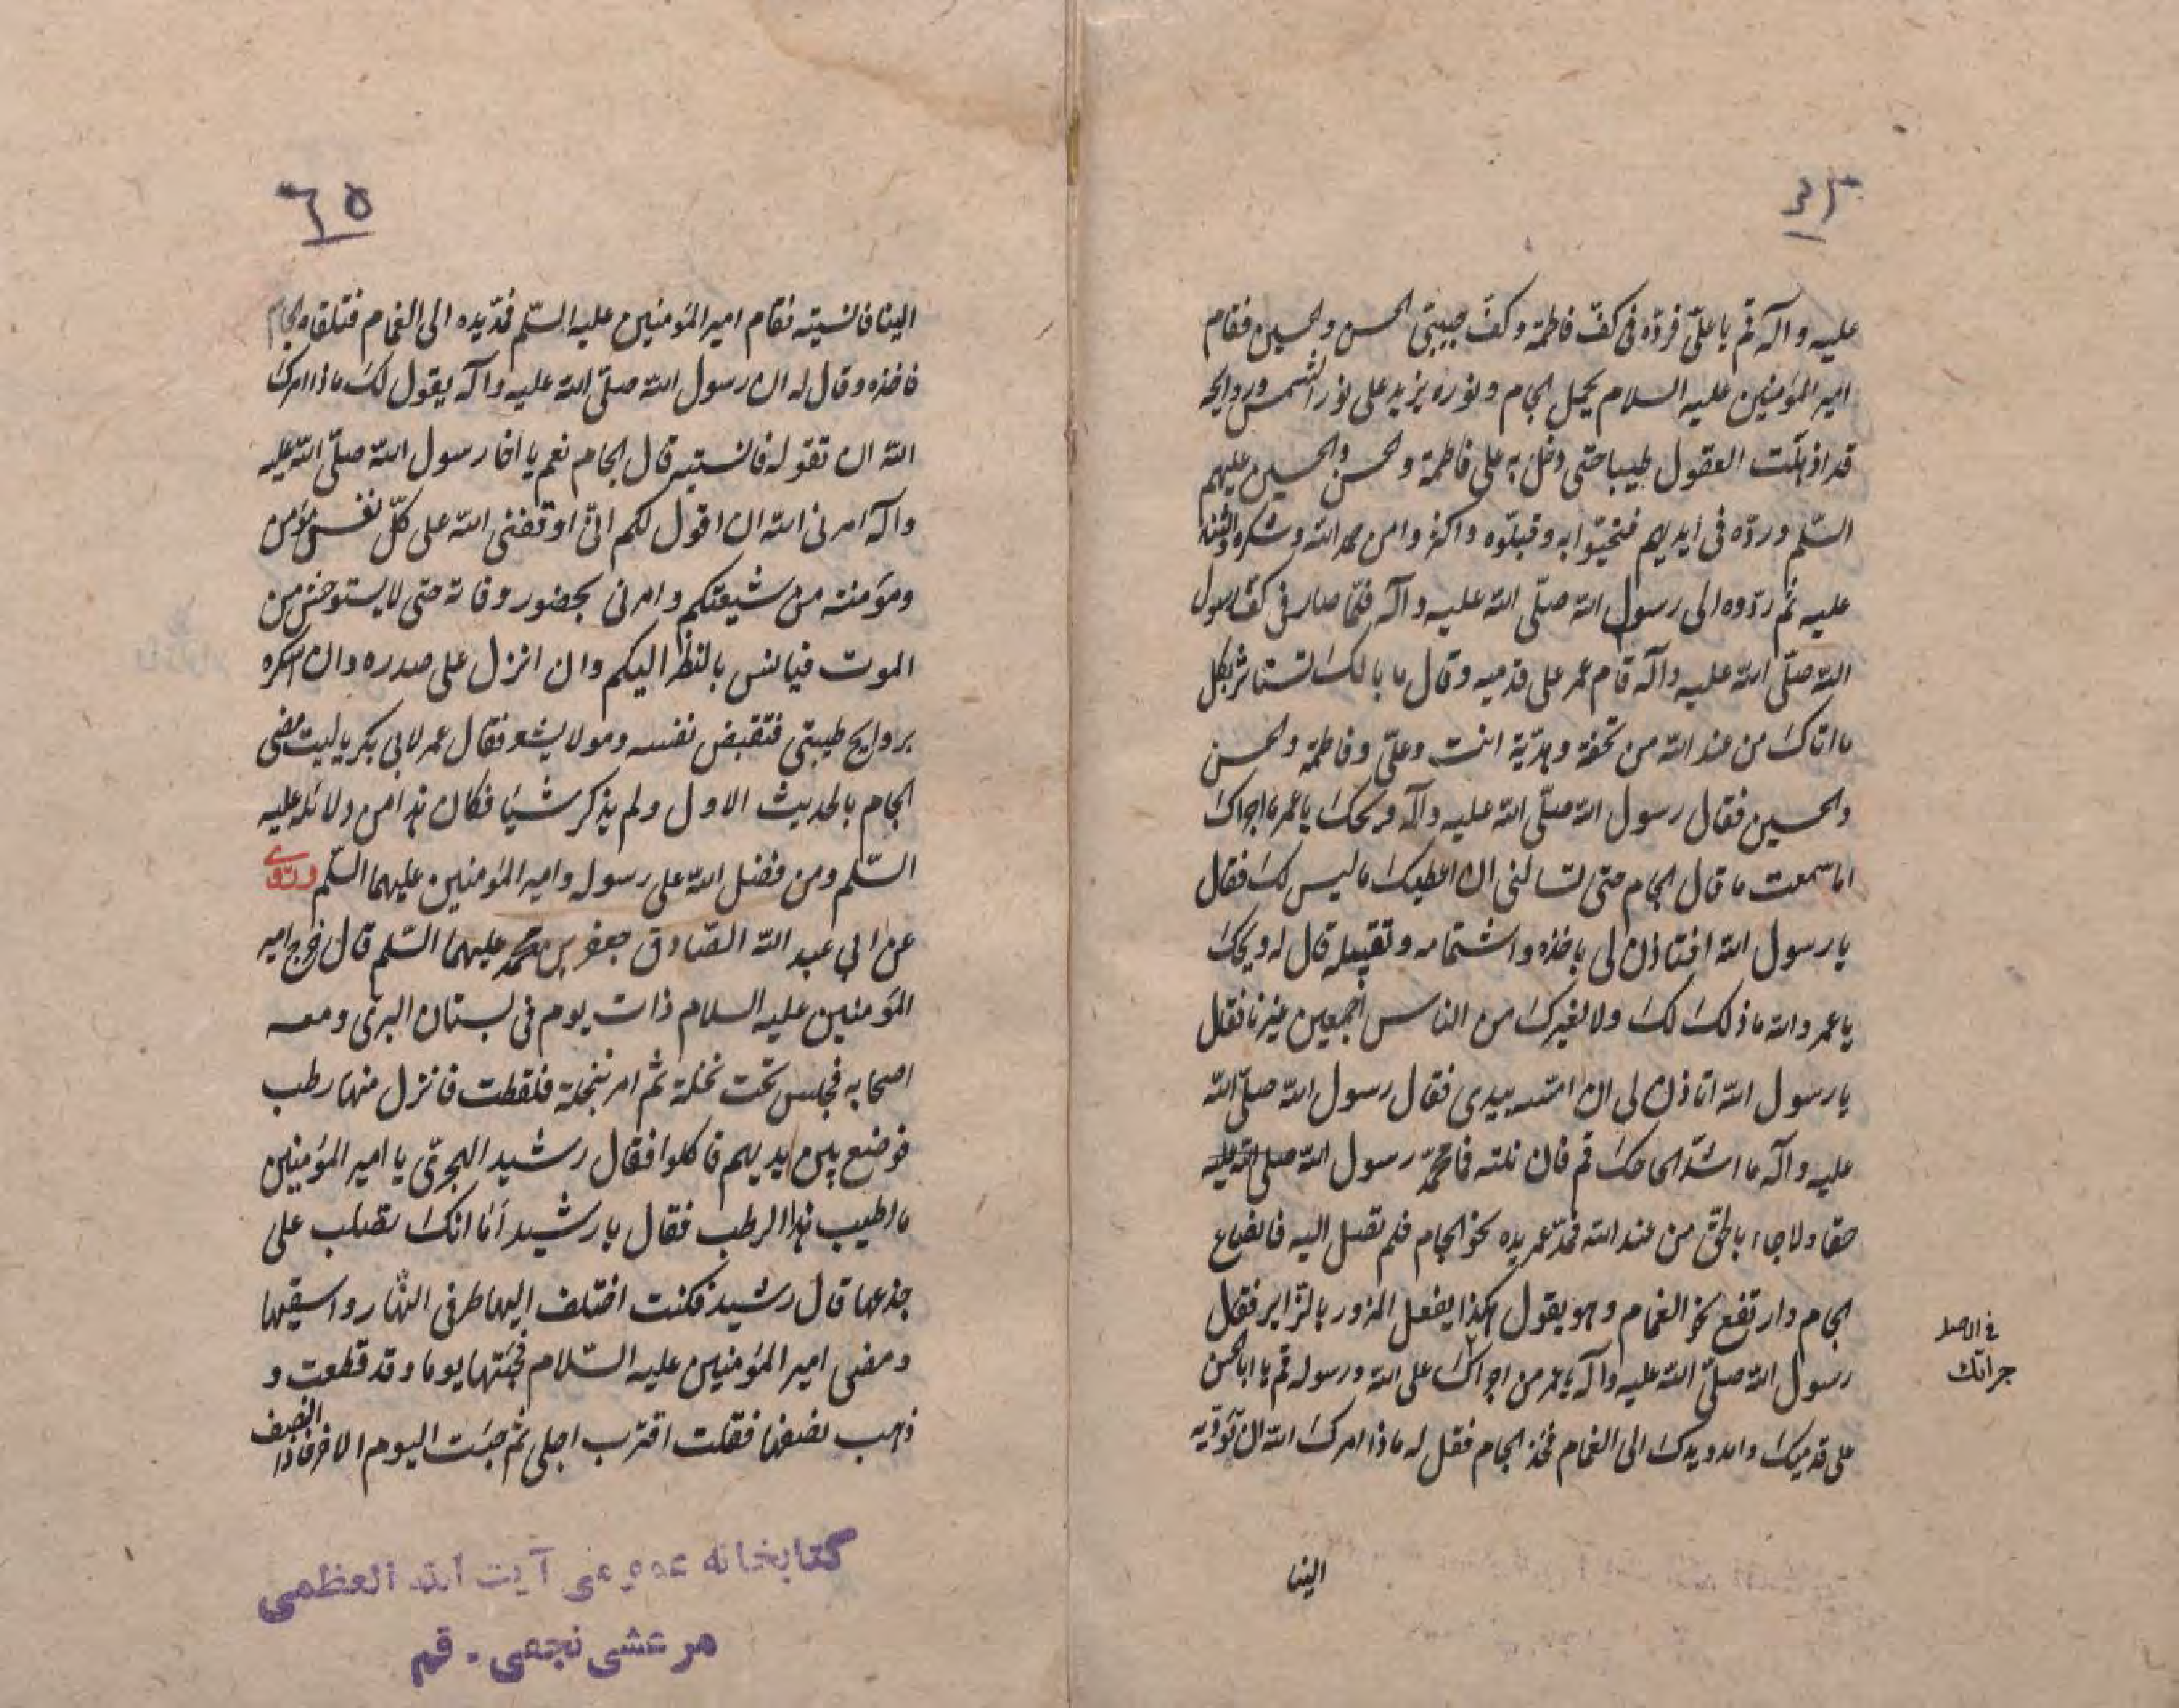 عليه وآله قم يا علىّ فردّه فى كفّ فاطمة وكفّ حبيبىّ الحسن والحسين فقام
امير المؤمنين عليه السلام يحمل الجام ونوره يزيد على نور الشمس وروايحه
قد اذهلت العقول طيبا حتى دخل به على فاطمة والحسن والحسين عليهم
السّلم وردّه فى ايديهم فتحيّوا به وقبّلوه واكثروا من حمد الله وشكره والثناء
عليه ثم ردّوه الى رسول الله صلّى الله عليه وآله فلمّا صار فى كفّ رسول
الله صلّى الله عليه وآله قام عمر على قدميه وقال ما بالك تستاثر بكل
ما اتاك من عند الله من تحفة وهديّة انت وعلىّ وفاطمة والحسن
والحسين فقال رسول الله صلّى الله عليه وآله ويحك يا عمر ما اجراك
اما سمعت ما قال الجام حتى تسالنى ان اعطيك ما ليس لك فقال
يا رسول الله افتاذن لى باخذه واشتمامه وتقبيله قال له ويحك
يا عمر والله ما ذلك لك ولا لغيرك من الناس اجمعين غيرنا فقال
يا رسول الله اتاذن لى ان امسّه بيدى فقال رسول الله صلّى الله
عليه وآله ما اشدّ الحاحك قم فان نلته فما محمّد رسول الله صلى الله عليه
حقا ولا جاء بالحق من عند الله فمدّ عمر يده نحو الجام فلم تصل اليه فانصاع
الجام وارتفع نحو الغمام وهو يقول هكذا يفعل المزور بالزاير فقال
رسول الله صلّى الله عليه وآله يا عمر من اجراك على الله ورسوله قم يا ابا الحسن
على قدميك وامدد يدك الى الغمام فخذ الجام فقل له ماذا امرك الله ان تؤدّيه
فى الاصل
جراتك
الينا
٦٥
الينا فانسيته فقام امير المؤمنين عليه السّلم فمدّ يده الى الغمام فتلقاه الجام
فاخذه وقال له ان رسول الله صلّى الله عليه وآله يقول لك ماذا امرك
الله ان تقوله فانسيته قال الجام نعم يا اخا رسول الله صلّى الله عليه
وآله امرنى الله ان اقول لكم انّى اوقفنى الله على كلّ نفس مؤمن
ومؤمنة من شيعتكم وامرنى بحضور وفاته حتى لا يستوحش من
الموت فيانس بالنظر اليكم وان انزل على صدره وان اسكره
بروايح طيبتى فتقبض نفسه وهو لا يشعر فقال عمر لابى بكر يا ليت مضى
الجام بالحديث الاول ولم يذكر شيئا فكان هذا من دلائله عليه
السّلم ومن فضل الله على رسوله وامير المؤمنين عليهما السّلم وروى
عن ابى عبد الله الصّادق جعفر بن محمّد عليهما السّلم قال خرج امير
المؤمنين عليه السلام ذات يوم فى بستان البرى ومعه
اصحابه فجلس تحت نخلة ثم امر بنخلة فلقطت فانزل منها رطب
فوضع بين يديهم فاكلوا فقال رشيد الهجرىّ يا امير المؤمنين
ما اطيب هذا الرطب فقال يا رشيد أما انك تصلب على
جذعها قال رشيد فكنت اختلف اليها طرفى النّهار واسقيها
ومضى امير المؤمنين عليه السّلام فجئتها يوما وقد قطعت و
ذهب نصفها فقلت اقترب اجلى ثم جئت اليوم الاخر فاذا النصف
كتابخانه عمومى آيت الله العظمى
مرعشى نجفى - قم